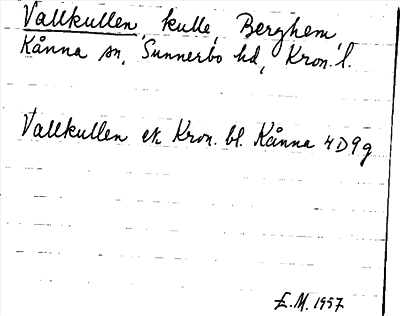 Vallkullen, kulle, Berghem,
Kånna sn, Sunnerbo hd, Kron. l.
Vallkullen ek Kron. bl. Kånna 4D9g
E.M. 1957